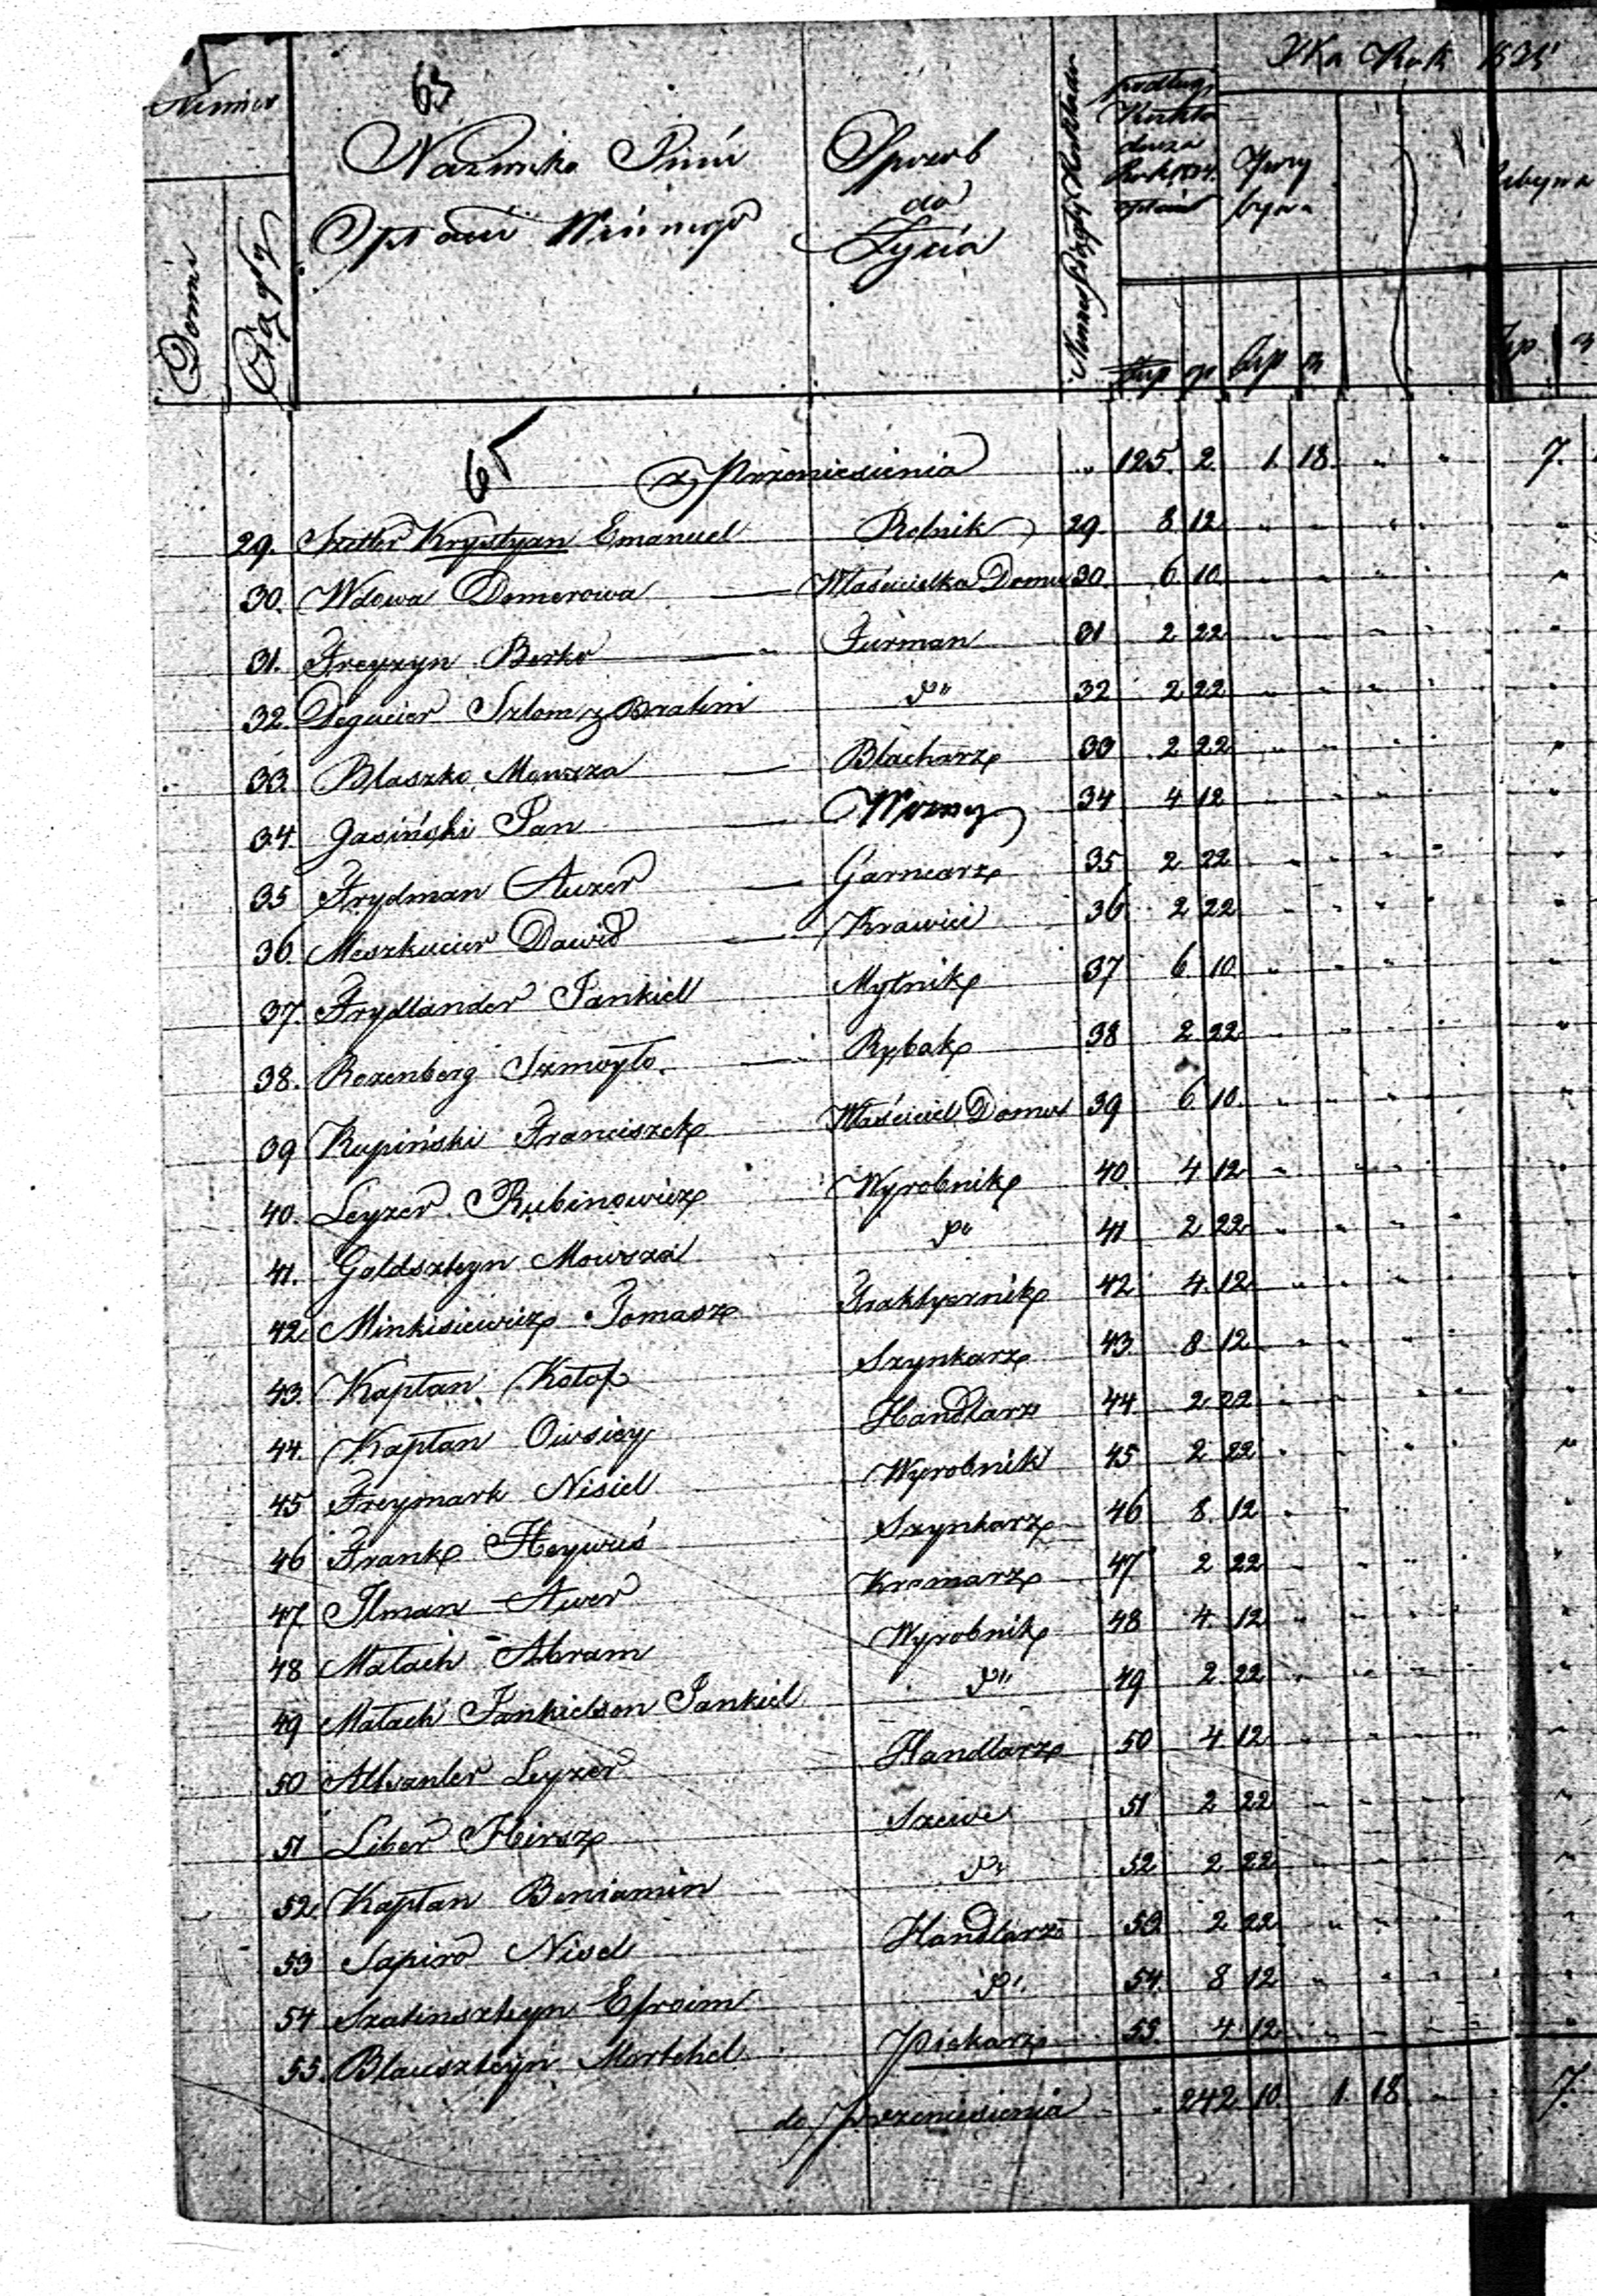 63
Numer
Domu
Ciągły
Nazwisko Imie
Opłacaiącego
Sposób
do
Życia
podług
Rozkładu
Złp gr Złp gr
Na Rok 1835
Przybywa
Ubywa
65
z Przeniesienia " 125. 2. 1. 18. " " 7.
29. Szitler Krystyan Emanuel Rolnik 29. 8 12 " " " "
30. Wdowa Domerowa Właścicielka Domu 30. 6 10 " " " "
31. Freyzyn Berko Furman 31 2 22 " " " "
32. Degucier Szlom z Bratem d° 32 2 22 " " " "
33. Blaszko Mowsza Blacharz 33 2 22 " " " "
34. Jasiński Jan Woźny 34 4 12 " " " "
35 Frydman Auzer Garncarz 35 2 22 " " " "
36. Meszkucier Dawid Krawiec 36 2 22 " " " "
37. Frydlander Jankiel Mytnik 37 6 10 " " " "
38. Rozenberg Szmoyło Rybak 38 2 22 " " " "
39 Kupiński Franciszek Właściciel Domu 39 6 10 " " " "
40. Leyzer Rubinowicz Wyrobnik 40 4 12 " " " "
41. Goldszteyn Mowsza d° 41 2 22 " " " "
42 Minkisiewicz Tomasz Traktyernik 42 4 12 " " " "
43. Kapłan Kołof Szynkarz 43 8 12 " " " "
44. Kapłan Owsiey Handlarz 44 2 22 " " " "
45 Freymark Nisiel Wyrobnik 45 2 22 " " " "
46 Frank Heywuś Szynkarz 46 8 12 " " " "
47 Ilman Awer Kramarz 47 2 22 " " " "
48 Małach Abram Wyrobnik 48 4 12 " " " "
49 Małach Jankielson Jankiel d° 49 2 22 " " " "
50 Leyzer Handlarz 50 4 12 " " " "
51 Liber Hirsz Szewc 51 2 22 " " " "
52 Kapłan Beniamin d° 52 2 22 " " " "
53 Sapiro Nisel Handlarz 53 2 22 " " " "
54 Szatensztyn Efroim d° 54 8 12 " " " "
55. Blauszteyn Mortchel Piekarz 55 4 12 " " " "
do przeniesienia " 242 10. 1. 18. " " 7.